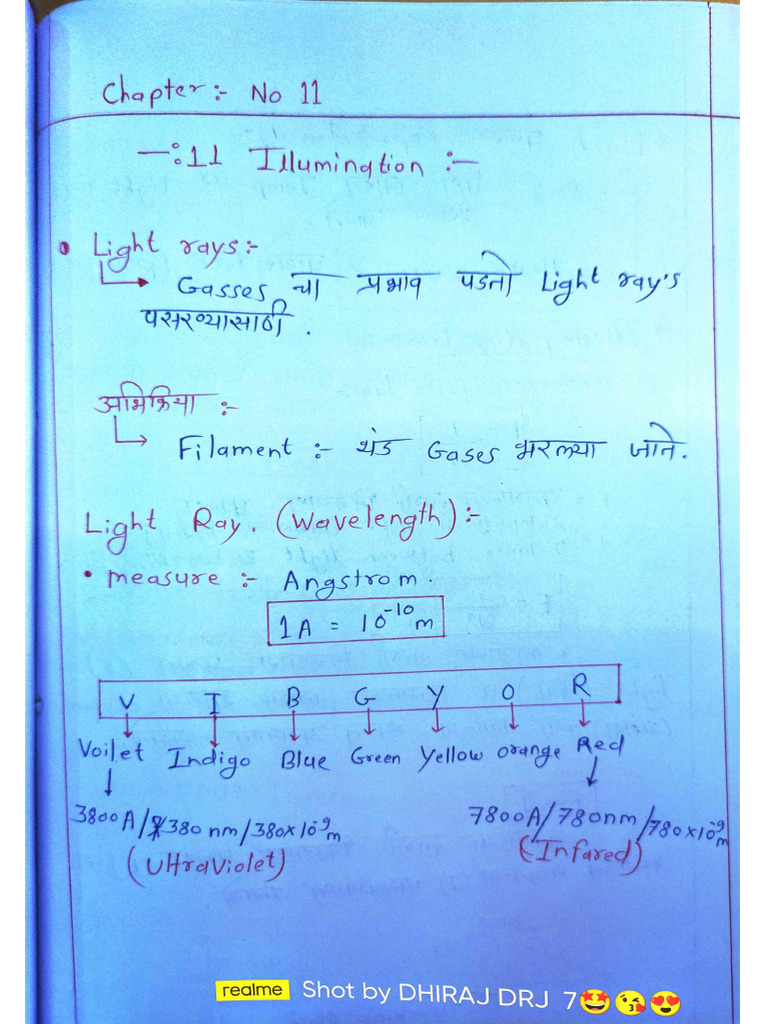 Chapter :- No 11
—:11 Illumination :—
• Light rays :-
Gasses चा प्रभाव पडतो Light ray's
पसरव्यासाठी .
अभिक्रिया :-
Filament :- थंड Gases भरल्या जाते.
Light Ray. (Wavelength) :-
• measure :- Angstrom.
1A = 10⁻¹⁰m
V I B G Y O R
Voilet Indigo Blue Green Yellow orange Red
3800A/380nm/380x10⁻⁹m 7800A/780nm/780x10⁻⁹m
(UltraViolet) (Infared)
realme Shot by DHIRAJ DRJ 7🤩😘😍